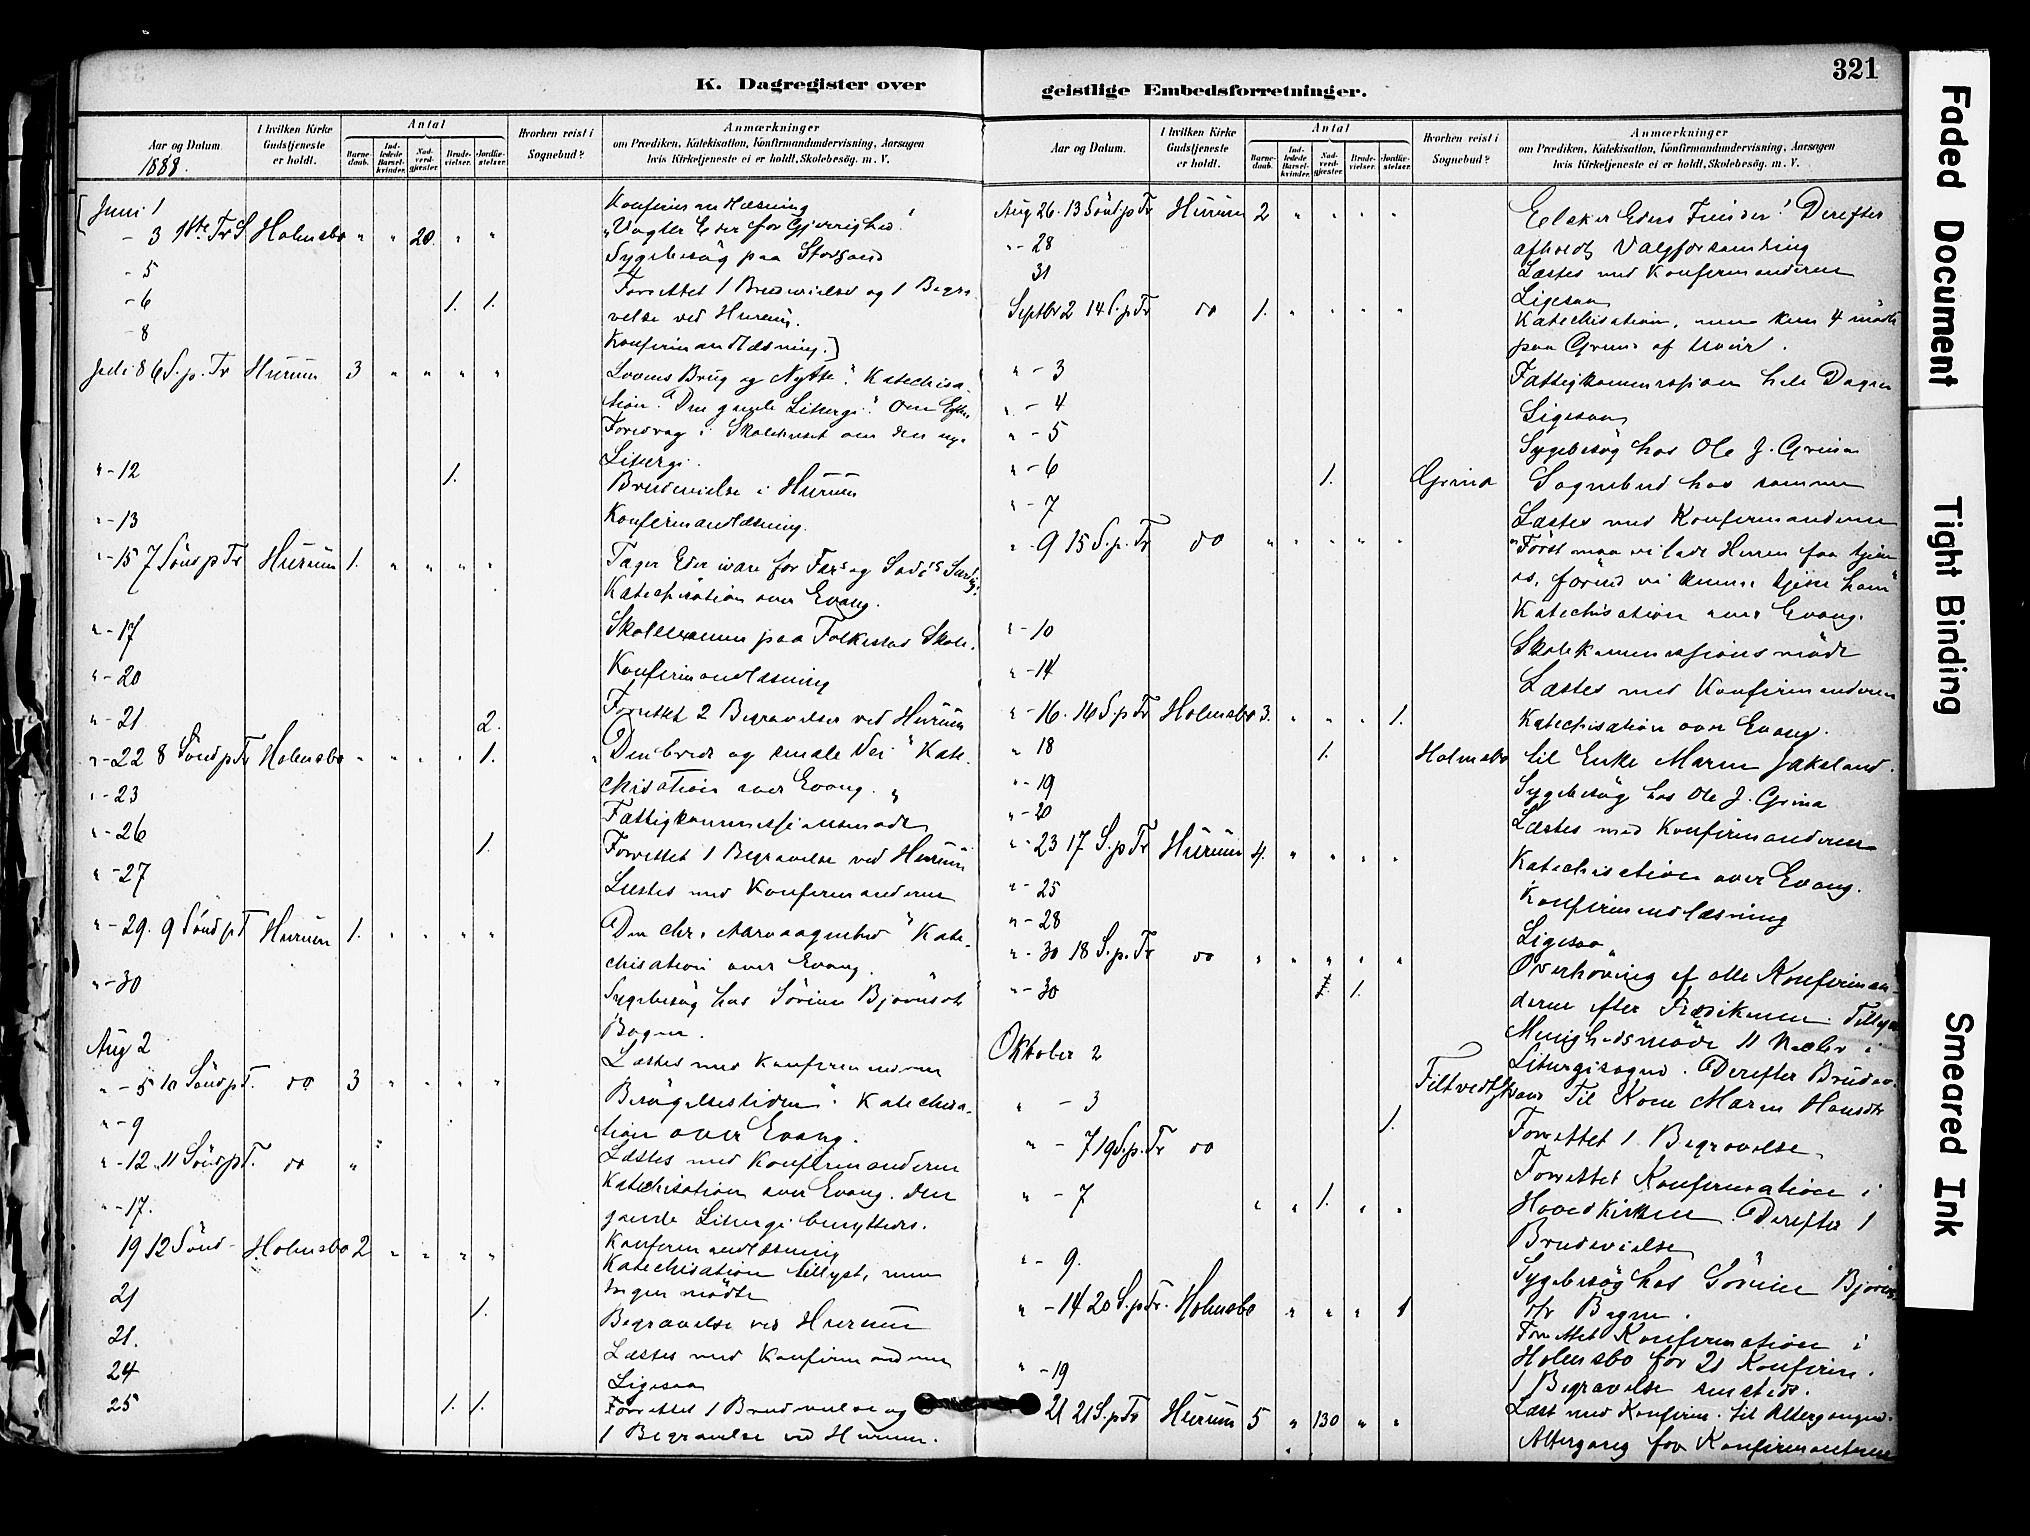 K. Dagregister over
Aar og Datum.
1888.
I hvilken Kirke Gudstjeneste er holdt.
Antal
Barnedaab.
Indledede Barselkvinder.
Nadverdgjæster.
Brudevielser.
Jordfæstelser.
Hvorhen reist i Sognebud?
Anmærkninger
om Prædiken, Katekisation, Konfirmandundervisning, Aarsagen
hvis Kirketjeneste ei er holdt, Skolebesøg. m. V.
Juni 1 Konfirmandlæsning
- 3 1ste Tr S. Holmsbo " " 20. " " "Vogter Eder for Gjerrighed!"
- 5 Sygebesøg paa Storsand
- 6 1. 1. Forrettet 1 Brudevielse og 1 Begra-
velse ved Hurum.
- 8 Konfirmandlæsning.]
Juli 8 6 S. p. Tr Hurum 3 " " " " Lovens Brug og Nytte". Katechisa-
tion. Den gamle Liturgi. Om Efterm.
Foredrag i Skolehuset om den nye
Liturgi.
" - 12 1. Brudevielse i Hurum
" - 13 Konfirmandlæsning.
" - 15 7 Sönd p Tr Hurum 1. " " " "
Katechisation over Evang.
" - 17 Skoleexamen paa Folkestad Skole.
" - 20 Konfirmandlæsning
" - 21 2. Forrettet 2 Begravelser ved Hurum
" - 22 8 Sönd p Tr Holmsbo " " " " 1. "Den brede og smale Vei" Kate-
chisation over Evang.
" - 23 Fattigkommissionsmöde
" - 26 1. Forrettet 1 Begravelse ved Hurum
" - 27 Læstes med Konfirmanderne
" - 29. 9 Sönd p T Hurum 1. " " " " Den chr. Aarvaagenhed" Kate-
chisation over Evang.
" - 30 Sygebesög hos Sörine Björnsdt
Bogen.
Aug 2 Læstes med Konfirmanderne
" - 5 10 Sönd p T. do 3 " " " " Besögelsestiden". Katechisa-
tion over Evang.
" - 9 Læstes med Konfirmanderne
" - 12 11 Sönd p T. do " Katechisation over Evang. Den
gamle Liturgi benyttedes.
" - 17. Konfirmandlæsning
19 12 Sönd - Holmsbo 2 " " " " Katechisation tillyst, men
Ingen mödte
21 1. Begravelse ved Hurum
21. Læstes med Konfirmanderne
24 Ligesaa
25 1. 1. Forrettet 1 Brudevielse og
1 Begravelse ved Hurum.
321
geistlige Embedsforretninger.
Aar og Datum.
I hvilken Kirke Gudstjeneste er holdt.
Antal
Barnedaab.
Indledede Barselkvinder.
Nadverdgjæster.
Brudevielser.
Jordfæstelser.
Hvorhen reist i Sognebud?
Anmærkninger
om Prædiken, Katekisation, Konfirmandundervisning, Aarsagen
hvis Kirketjeneste ei er holdt, Skolebesøg. m. V.
Aug 26. 13 Sönd p Tr Hurum 2 " " " " Elsker Eders Fiender! Derefter
afholdt Valgforsamling
" - 28 Læstes med Konfirmanderne
31 Ligesaa
Septbr 2 14 S. p Tr do 1. " " " " Katechisation, men kun 4 mödte
paa Grund af Uveir.
" - 3 Fattigkommission hele Dagen
" - 4 Ligesaa
" - 5 Sygebesög hos Ole J. Grina
" - 6 1. Grina Sognebud hos samme
" - 7 Læstes med Konfirmanderne
" - 9 15 S. p. Tr do " " " " " "Först maa vi lade Herren faa tjene
os, förend vi kunne tjene ham"
Katechisation over Evang.
" - 10 Skolekommissionsmöde
" - 14 Læstes med Konfirmanderne
" - 16. 16 S p Tr Holmsbo 3. " " " 1. Katechisation over Evang.
" 18 1. Holmsbo til Enke Maren Jaksland.
" - 19 Sygebesög hos Ole J. Grina
" - 20 Læstes med Konfirmanderne
" - 23 17 S. p Tr Hurum 4. " " " " Katechisation over Evang.
" - 25 Konfirmandlæsning
" - 28 Ligesaa
" - 30 18 S. p. Tr do " " " " " Overhöring af alle Konfirman-
derne efter Prædikenen.
Menighedsmöde
" - 30 1. Derefter Brudev.
Oktober 2 Filtvedt Til Kone Maren Hansdtr
" - 3 1. Forrettet 1 Begravelse
" - 7 19 S. p. Tr do Forrettet Konfirmation i
Hovedkirken. Derefter 1
" - 7 " " 1. " " Brudevielse
" - 9. Sygebesög hos Sörine Björns-
dtr Bogen.
" - 14 20 S. p Tr. Holmsbo " " " 1 Forrettet Konfirmation i
Holmsbo for 21 Konfirm.
1 Begravelse smsteds.
" - 19 Læst med Konfirm. til Altergangen.
21 21 S. p Tr Hurum 5 " 130 " " Altergang for Konfirmanterne
Faded Document
Tight Binding
Smeared Ink